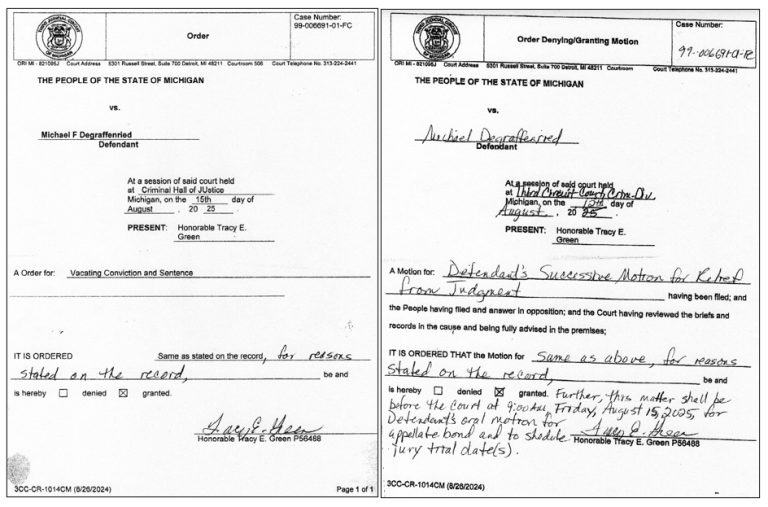 Order
Case Number:
99-006691-01-FC
ORI MI - 821095J Court Address 5301 Russell Street, Suite 700 Detroit, MI 48211 Courtroom 506 Court Telephone No. 313-224-2441
THE PEOPLE OF THE STATE OF MICHIGAN
vs.
Michael F Degraffenried
Defendant
At a session of said court held
at Criminal Hall of JUstice
Michigan, on the 15th day of
August , 20 25
PRESENT: Honorable Tracy E.
Green
A Order for: Vacating Conviction and Sentence
IT IS ORDERED Same as stated on the record, for reasons
stated on the record, be and
is hereby ☐ denied ☒ granted.
Tracy E. Green
Honorable Tracy E. Green P56468
3CC-CR-1014CM (8/26/2024)
Page 1 of 1
Order Denying/Granting Motion
Case Number:
99-006691-01-FC
ORI MI - 821095J Court Address 5301 Russell Street, Suite 700 Detroit, MI 48211 Courtroom Court Telephone No. 313-224-2441
THE PEOPLE OF THE STATE OF MICHIGAN
vs.
Michael Degraffenried
Defendant
At a session of said court held
at Third Circuit Court Crim-Div.
Michigan, on the 12th day of
August, 20 25.
PRESENT: Honorable Tracy E.
Green
A Motion for: Defendant's Successive Motion for Relief
from Judgment having been filed; and
the People having filed and answer in opposition; and the Court having reviewed the briefs and
records in the cause and being fully advised in the premises;
IT IS ORDERED THAT the Motion for Same as above, for reasons
stated on the record, be and
is hereby ☐ denied ☒ granted. Further, this matter shall be
before the Court at 9:00 AM, Friday, August 15, 2025, for
Defendant's oral motion for
appellate bond and to shedule
jury trial date(s).
Tracy E. Green
Honorable Tracy E. Green P56468
3CC-CR-1014CM (8/26/2024)